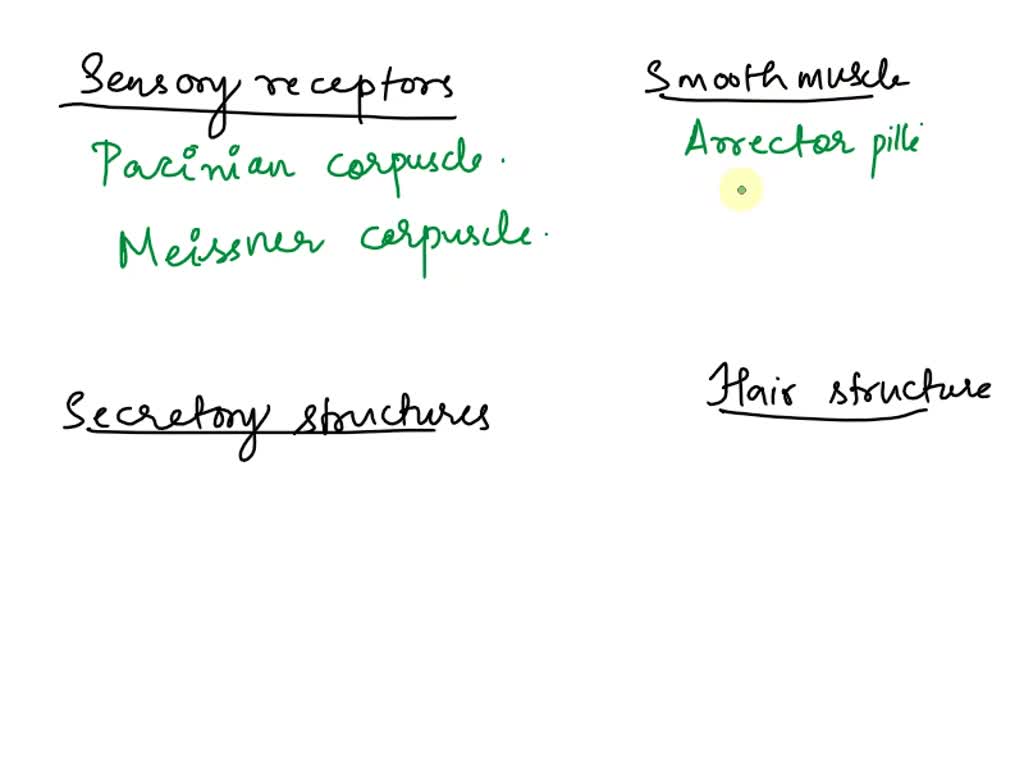 Sensory receptors
Pacinian corpuscle.
Meissner corpuscle.
Smooth muscle
Arrector pilli
Secretory structures
Hair structure